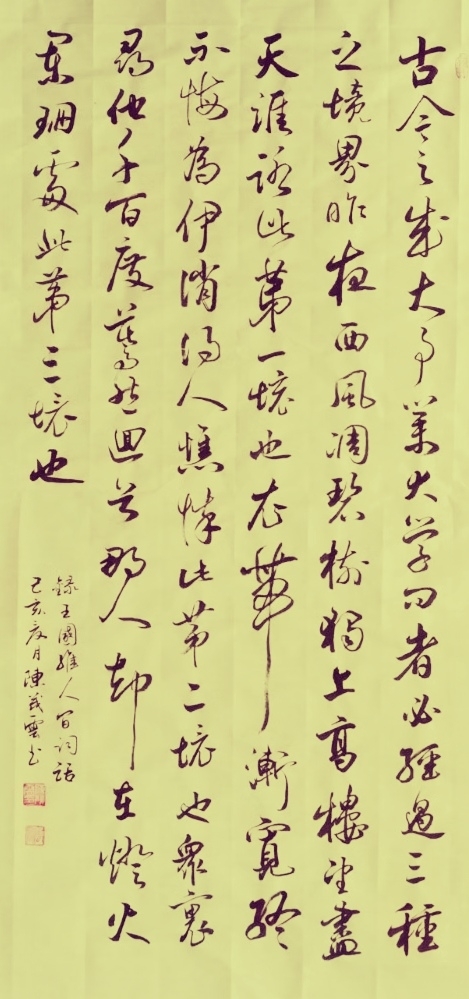 古今之成大事業大学问者必經過三種
之境界昨夜西風凋碧樹獨上高樓望盡
天涯路此第一境也衣帶漸寬終
不悔為伊消得人憔悴此第二境也眾裏
尋他千百度驀然迴首那人却在燈火
闌珊處此第三境也
錄王國維人间词話
己亥夏月陳茂雲书